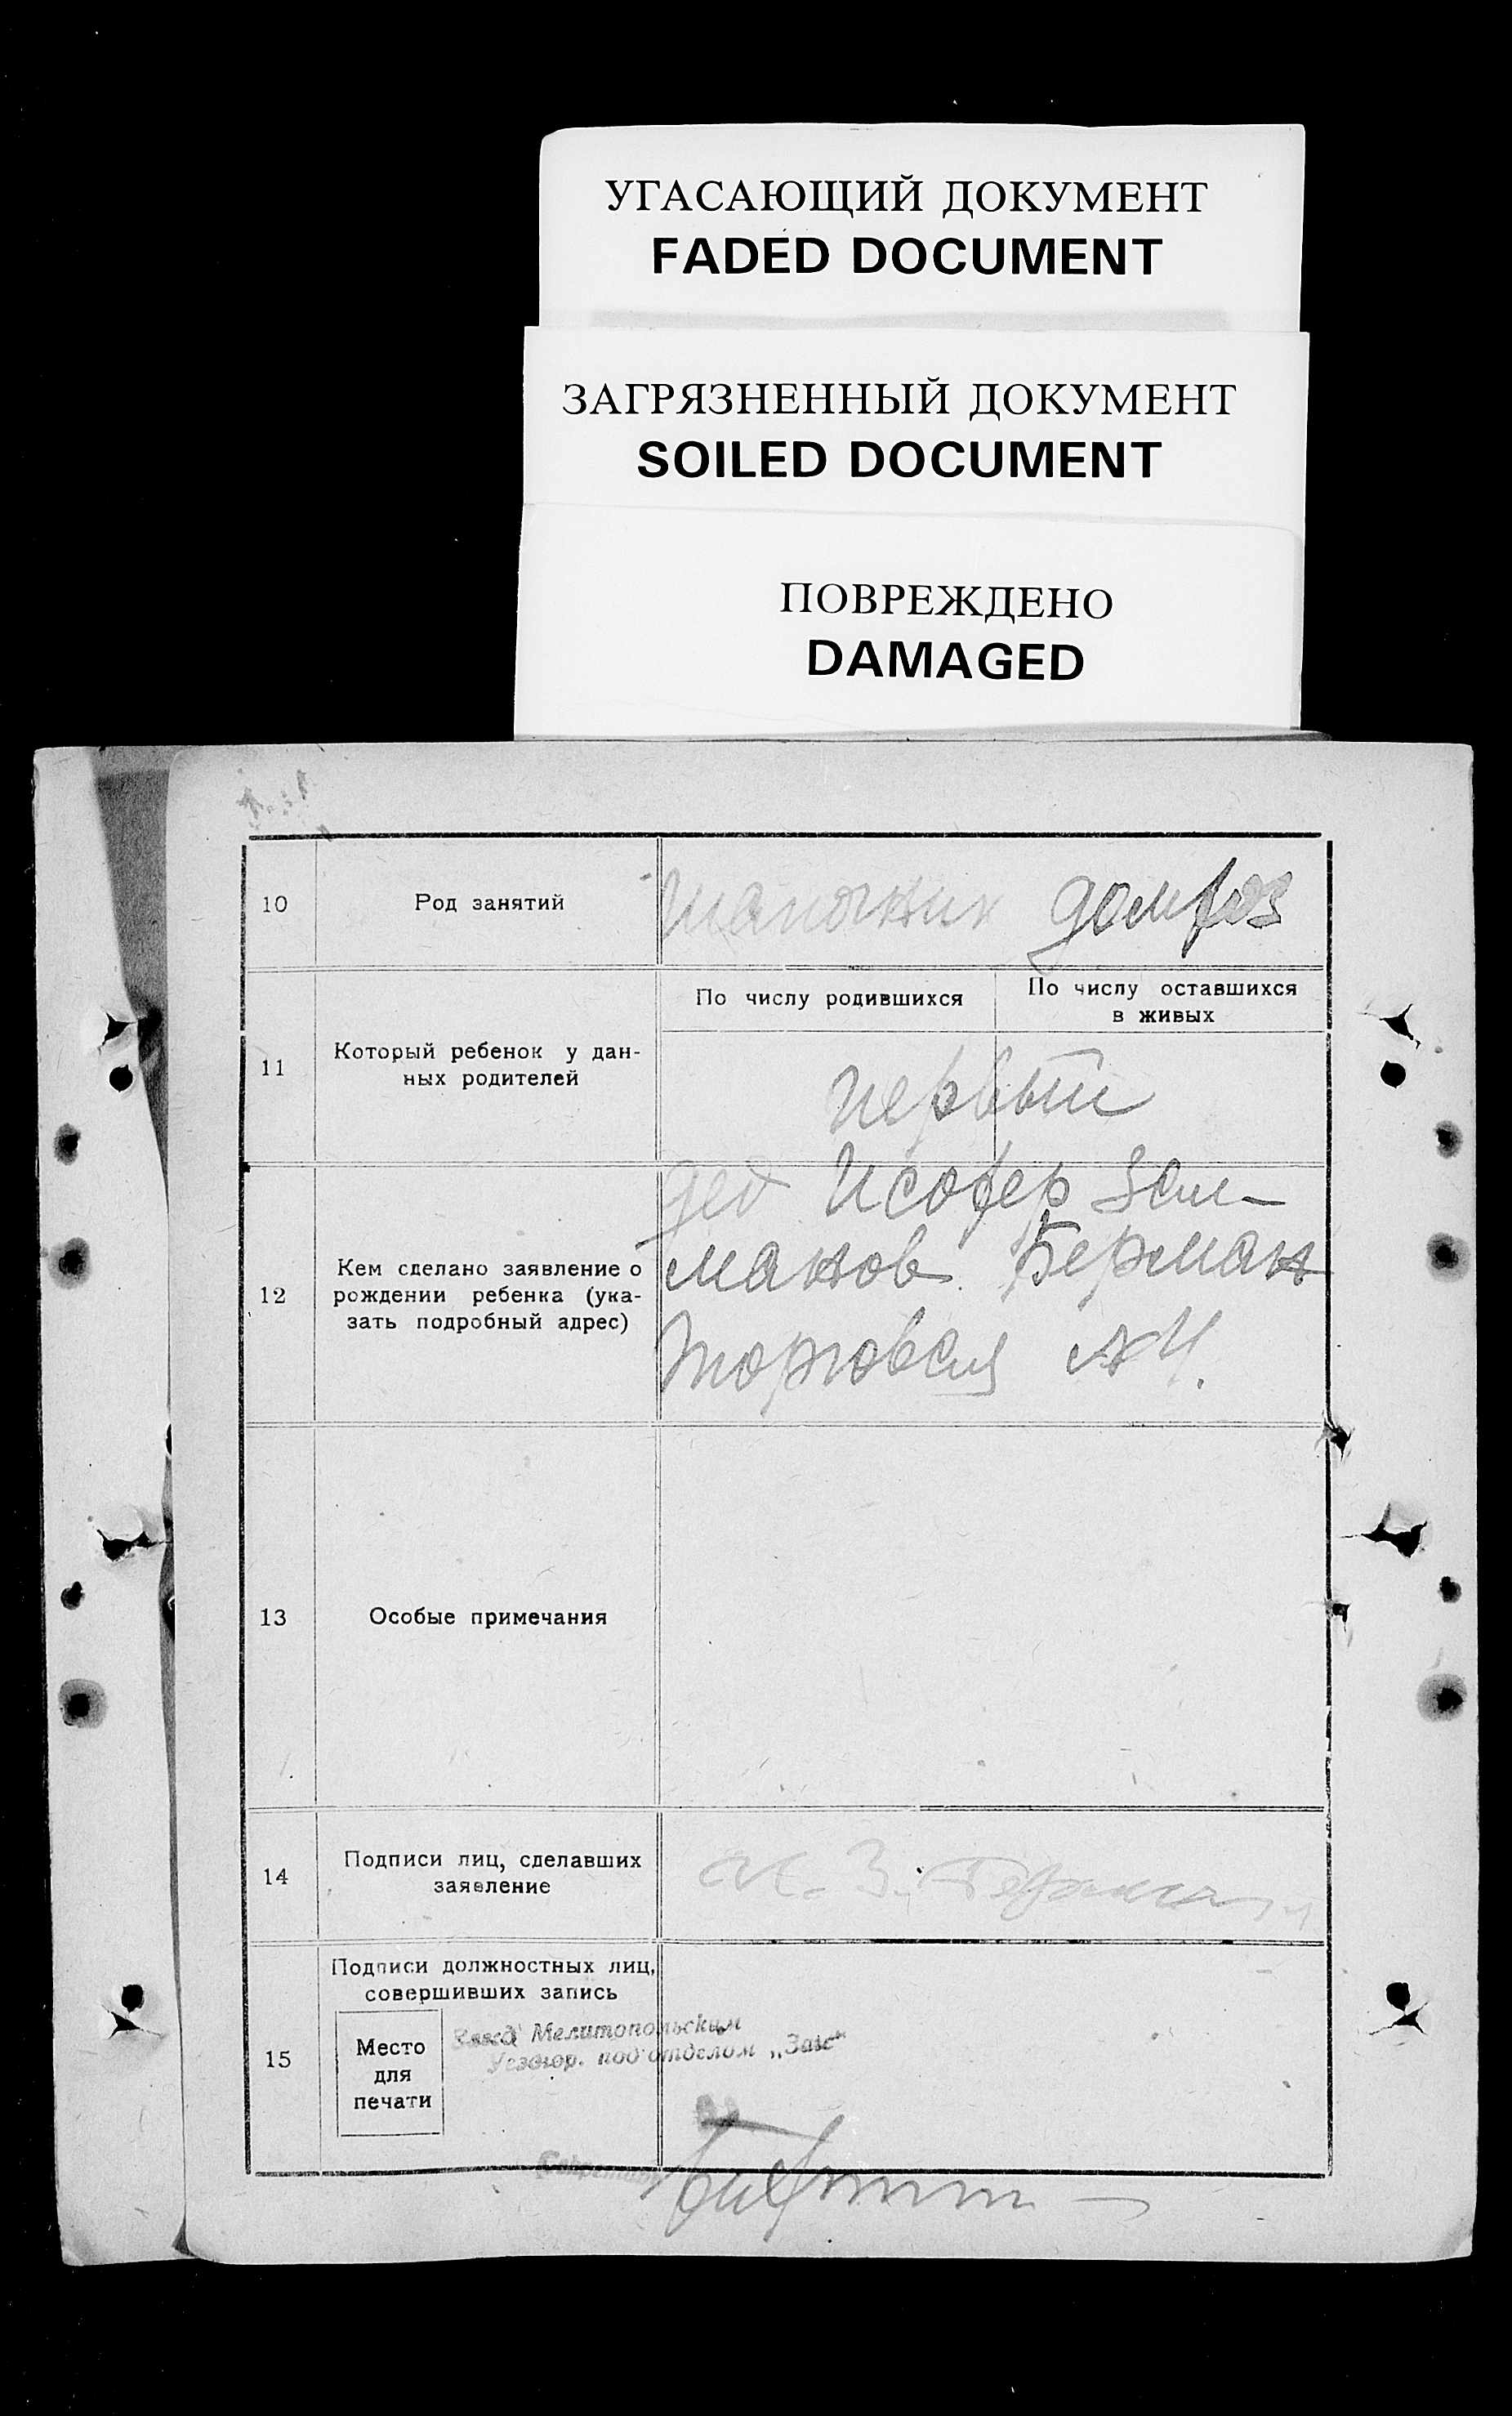 УГАСАЮЩИЙ ДОКУМЕНТ
FADED DOCUMENT
ЗАГРЯЗНЕННЫЙ ДОКУМЕНТ
SOILED DOCUMENT
ПОВРЕЖДЕНО
DAMAGED
10
Род занятий
шапочник
домхоз
11
Который ребенок у дан-
ных родителей
По числу родившихся
По числу оставшихся
в живых
первый
12
Кем сделано заявление о
рождении ребенка (ука-
зать подробный адрес)
дед
манов. Берман
Торговая
13
Особые примечания
14
Подписи лиц, сделавших
заявление
И. З. Берман
15
Подписи должностных лиц,
совершивших запись
Место
для
печати
Завед Мелитопольским
под'отделом „Загс"